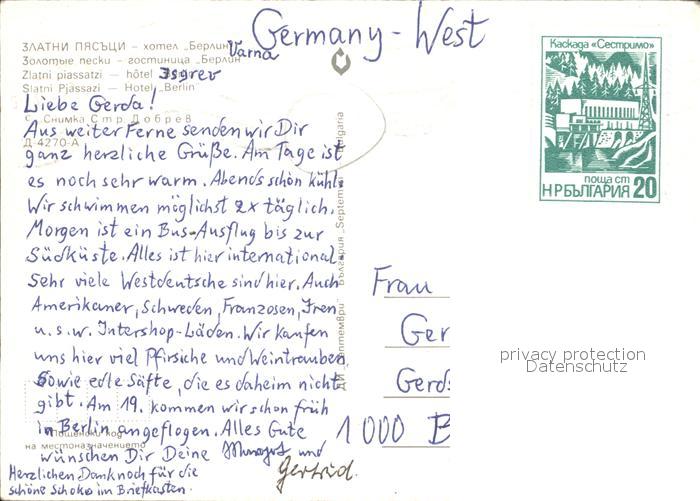 Germany - West
ЗЛАТНИ ПЯСЪЦИ – хотел „Берлин“
Varna
Золотые пески – гостиница „Берлин“
Zlatni piassatzi – hôtel Isgrev
Slatni Pjassazi – Hotel „Berlin“
Liebe Gerda!
Снимка Стр. Добрев
Aus weiter Ferne senden wir Dir
Д-4270-А
ganz herzliche Grüße. Am Tage ist
es noch sehr warm. Abends schön kühl.
Wir schwimmen möglichst 2x täglich.
Morgen ist ein Bus-Ausflug bis zur
Südküste. Alles ist hier international.
Sehr viele Westdeutsche sind hier. Auch
Amerikaner, Schweden, Franzosen, Iren
u.s.w. Intershop-Läden. Wir kaufen
uns hier viel Pfirsiche und Weintrauben
Sowie edle Säfte, die es daheim nicht
gibt. Am 19. kommen wir schon früh
in Berlin angeflogen. Alles Gute
Пощенски код
на местоназначението
wünschen Dir Deine und
Gertrud.
Herzlichen Dank noch für die
schöne Schoko im Briefkasten.
ДИ „Септември“ България „Septemvri“ Bulgaria
Каскада «Сестримо»
поща ст
НР БЪЛГАРИЯ 20
Frau
Ger
Gerds
1000 B
privacy protection
Datenschutz